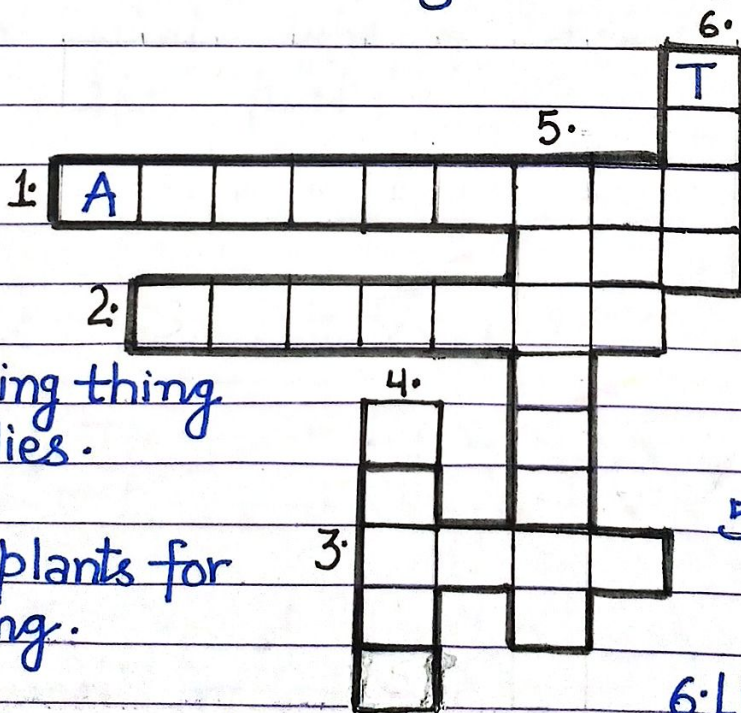 6.
T
5.
1. A
2.
ing thing
4.
ies.
3.
plants for
ng.
6.L